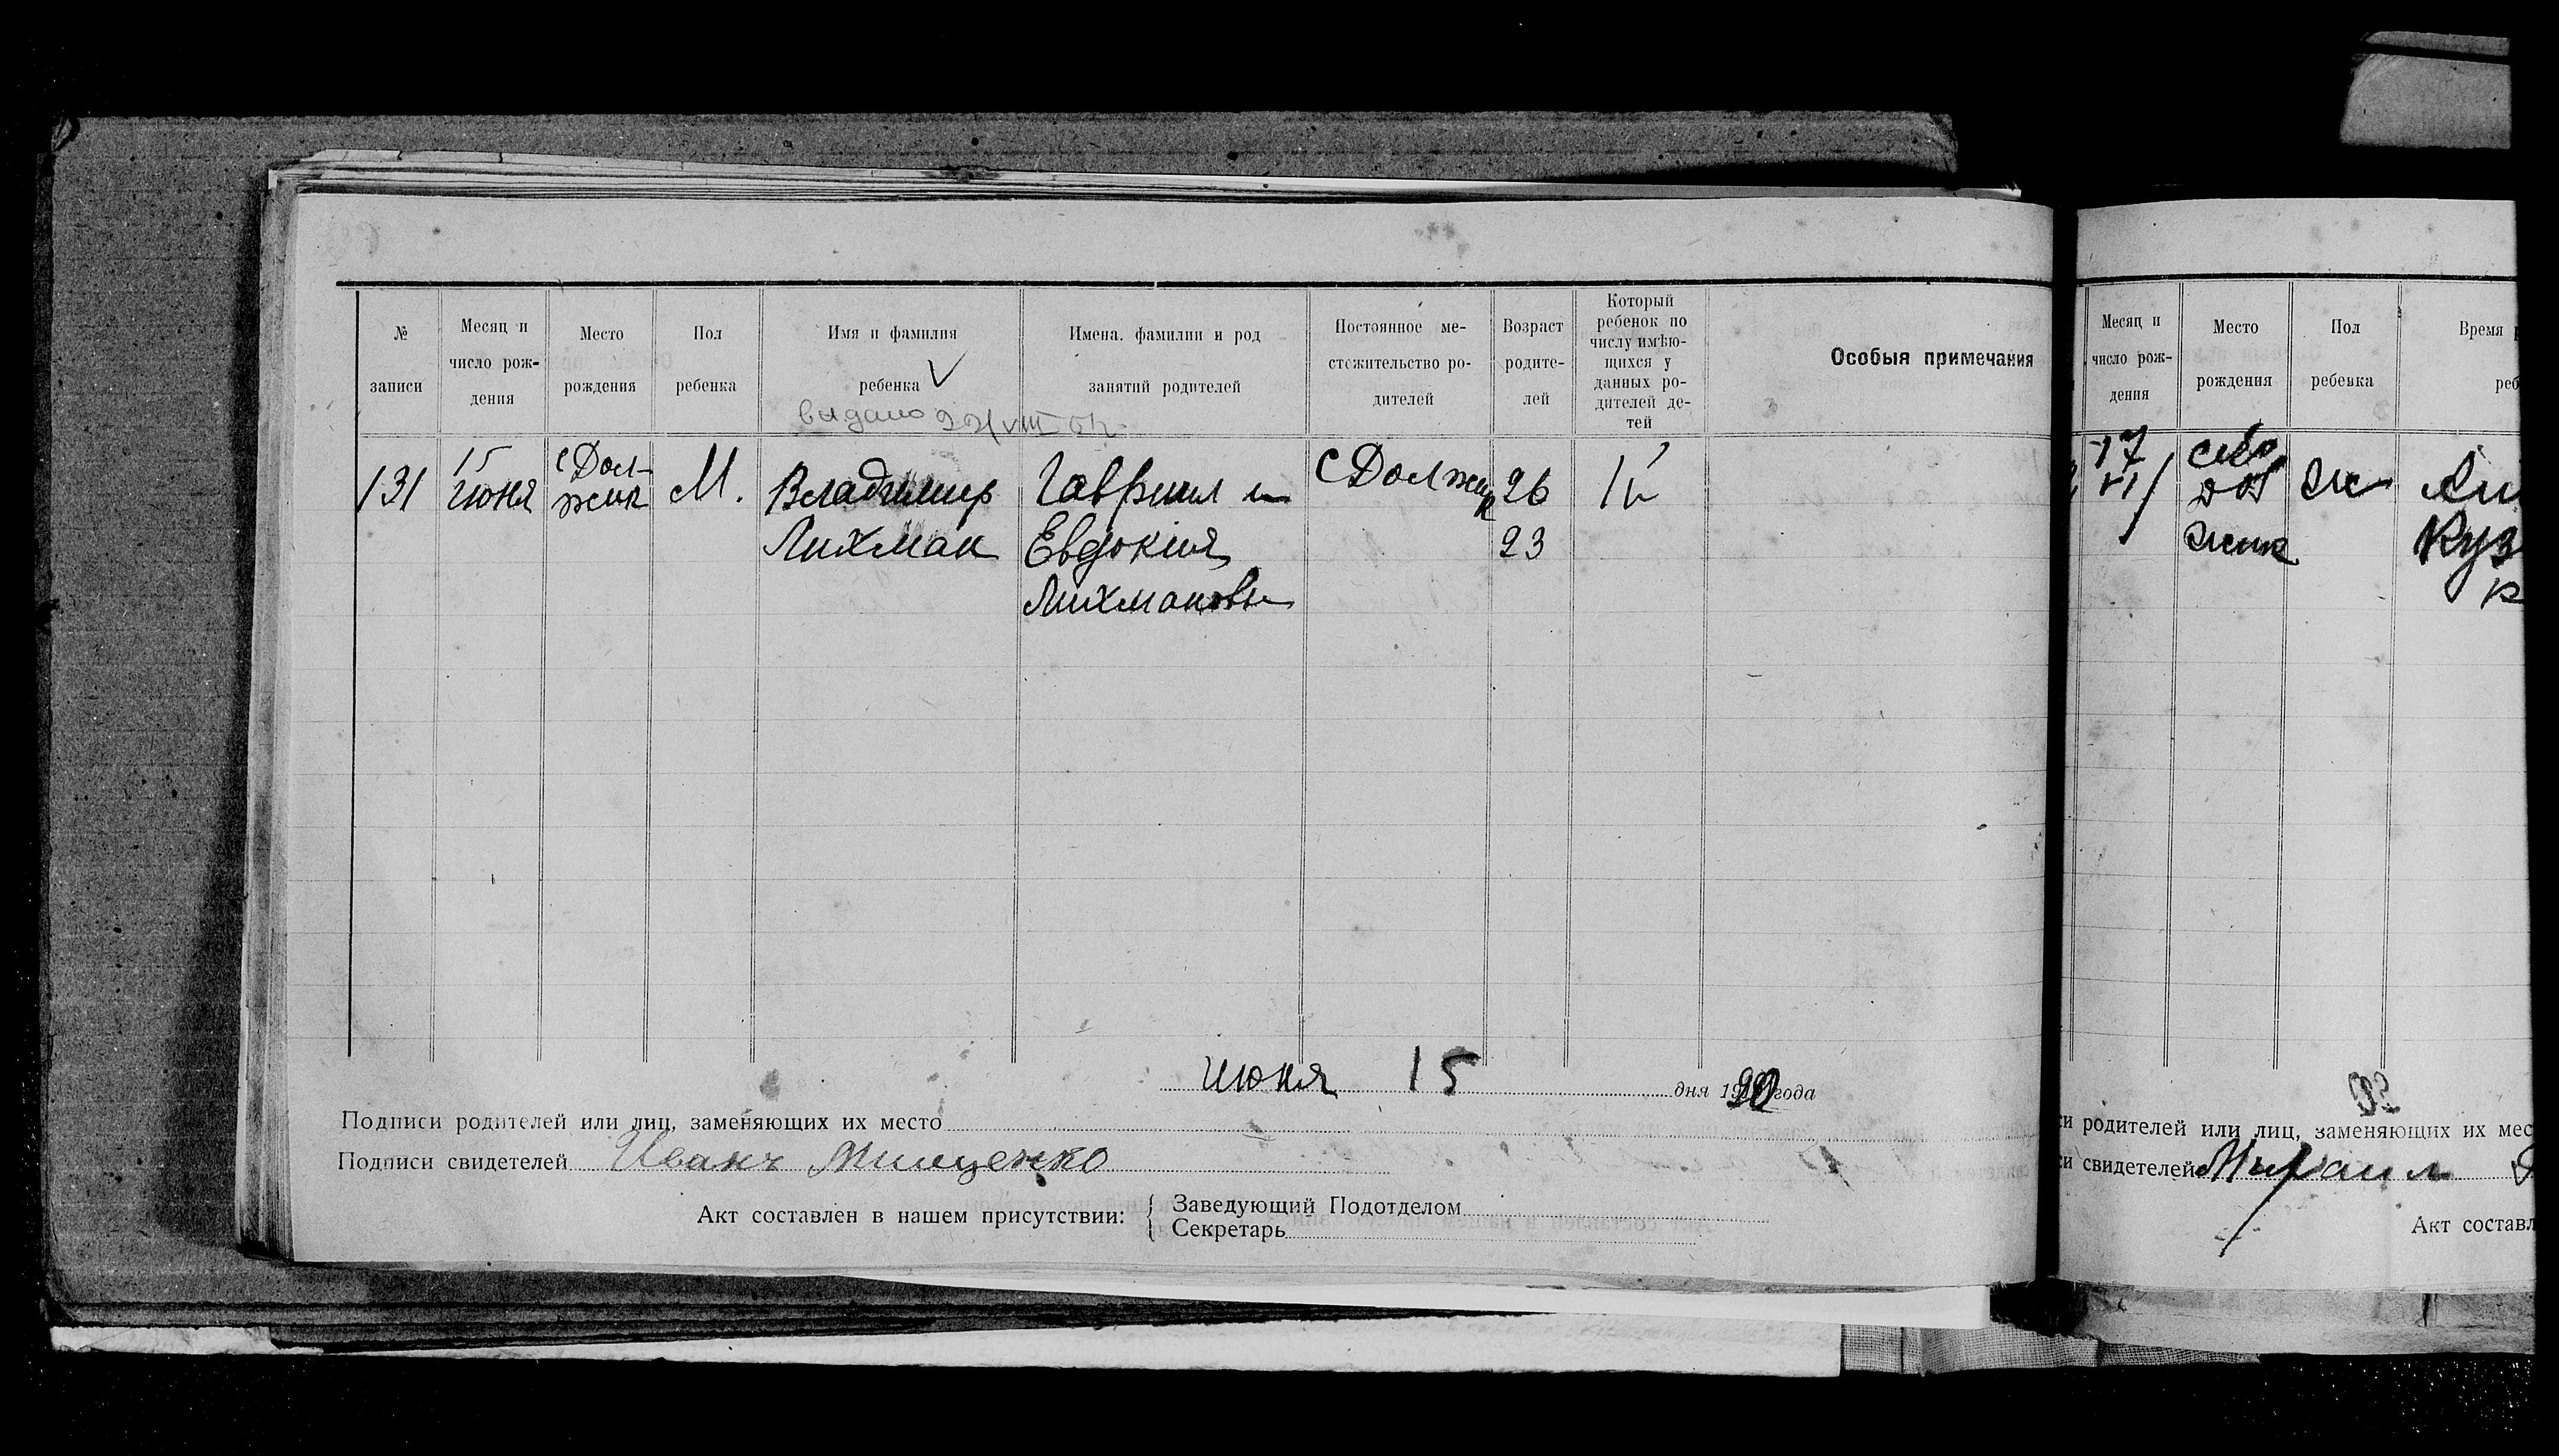 №
записи
Месяц и
число рож-
дения
Место
рождения
Пол
ребенка
Имя и фамилия
ребенка V
выдано
Имена. фамилии и род
занятий родителей
Постоянное ме-
стожительство ро-
дителей
Возраст
родите-
лей
Который
ребенок по
числу имѣю-
щихся у
данных ро-
дителей де-
тей
Особыя примечания
131
15
июня
с Дол-
жик
М.
Владимир
Лихман
Гавриил и
Евдокия
Лихмановы
с Должик
26
23
1й
июня 15 дня 1920 года
Подписи родителей или лиц, заменяющих их место
Подписи свидетелей Иванъ Мищенко
Акт составлен в нашем присутствии:
Заведующий Подотделом
Секретарь
Месяц и
число рож-
дения
Место
рождения
Пол
ребенка
Время
реб
17
VI
село
Дол
жик
Ж
Куз
си родителей или лиц, заменяющих их мес
си свидетелей Михаил
Акт составл